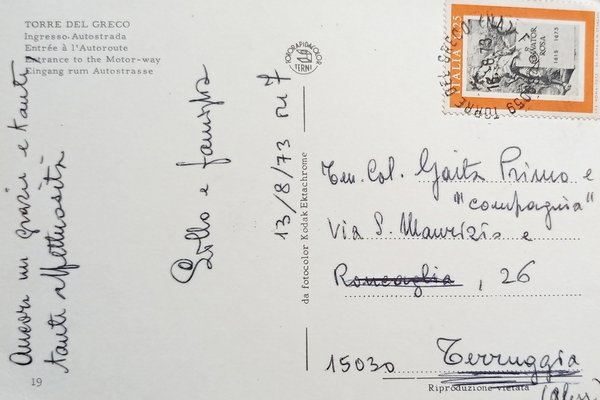 TORRE DEL GRECO
Ingresso Autostrada
Entrée à l'Autoroute
Entrance to the Motor-way
Eingang rum Autostrasse
Ancora un grazie e tante
tante affettuosità
Lillo e famiglia
13/8/73
FOTORAPIDACOLOR
TERNI
da fotocolor Kodak Ektachrome
ITALIA L. 25
SALVATOR
ROSA
1615 1673
TORRE DEL GRECO (NA)
80059
Ten. Col. Gaita Primo e
"compagnia"
Via S. Maurizio e
Roncaglia, 26
15030 Terruggia
(Aless
19
Riproduzione vietata